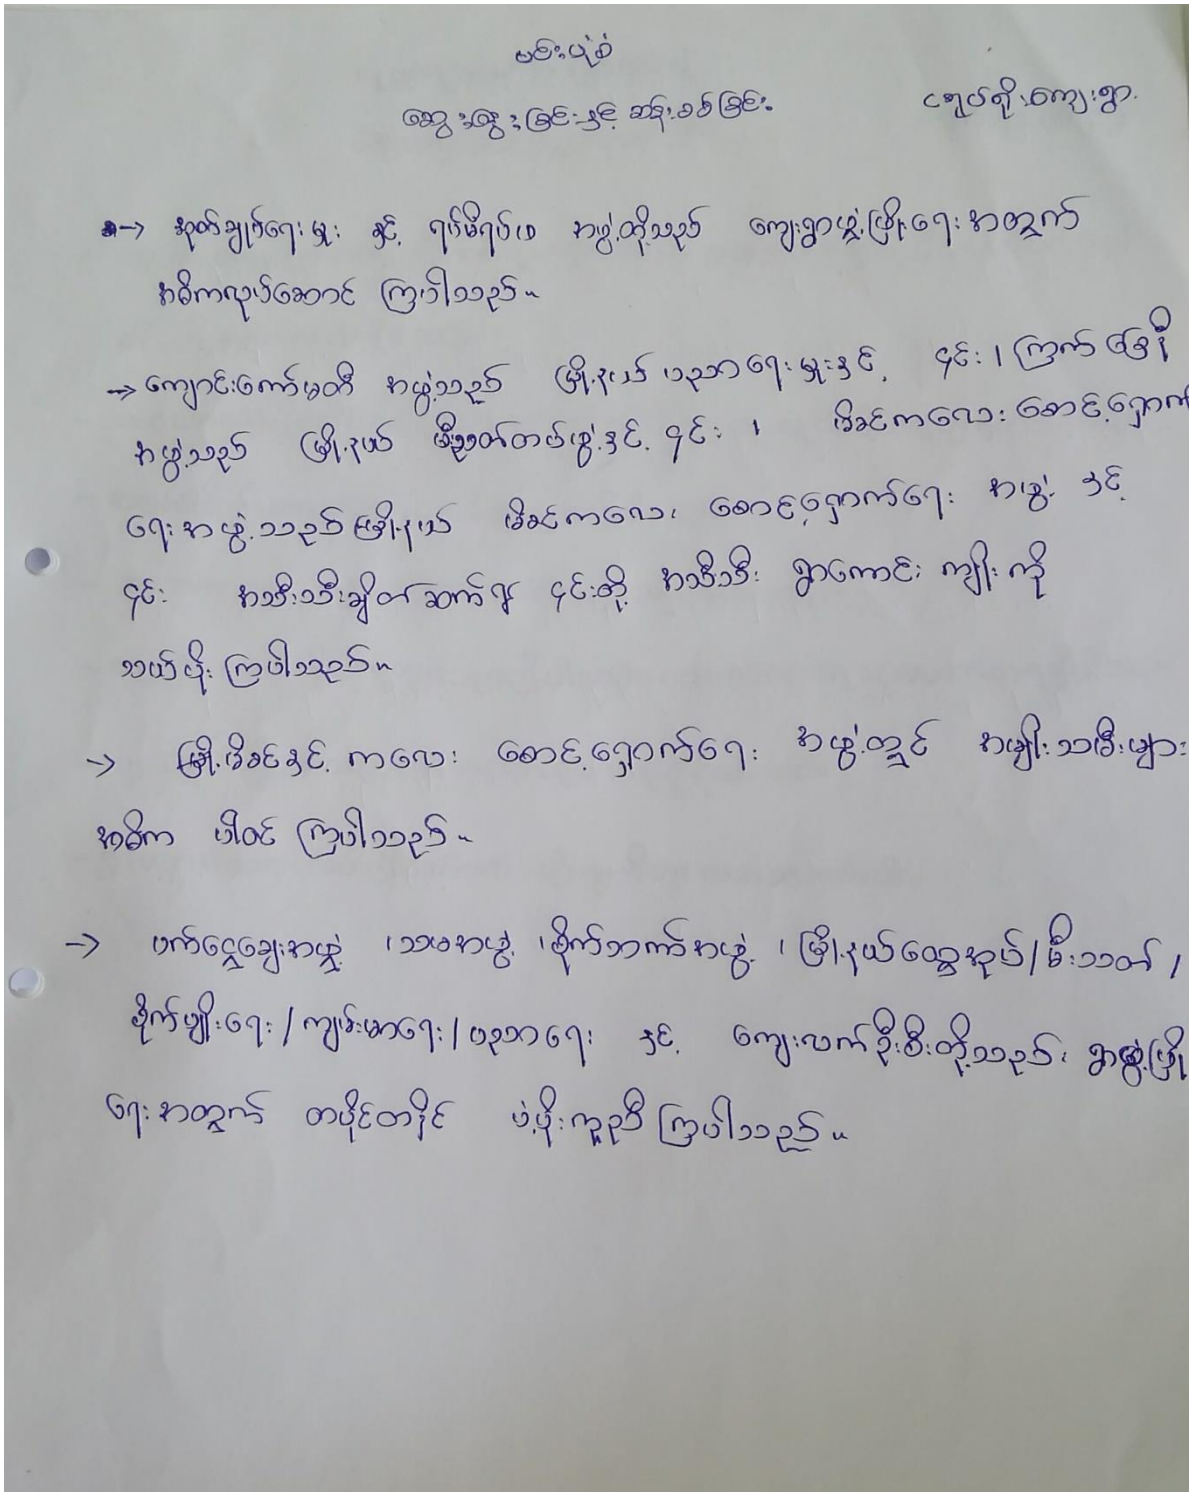 ဗင်းပုံစံ
ငရုပ်တိုးကျေးရွာ
ဆွေးနွေးခြင်းနှင့် ဆန်းစစ်ခြင်း
→ အုတ်ချုပ်ရေးမှူး နှင့် ရပ်မိရပ်ဖ အဖွဲ့တို့သည် ကျေးရွာဖွံ့ဖြိုးရေးအတွက်
အဓိကလုပ်ဆောင် ကြပါသည်။
→ ကျောင်းကော်မတီ အဖွဲ့သည် မြို့နယ် ပညာရေးမှူးနှင့် ၎င်း၊ ကြက်ခြေနီ
အဖွဲ့သည် မြို့နယ် မီးသတ်တပ်ဖွဲ့နှင့် ၎င်း ၊ မိခင်ကလေး စောင့်ရှောက်
ရေးအဖွဲ့သည် မြို့နယ် မိခင်ကလေး စောင့်ရှောက်ရေး အဖွဲ့ နှင့်
၎င်း အသီးသီးချိတ်ဆက်၍ ၎င်းတို့ အသီးသီး ရွာကောင်းကျိုးကို
သယ်ပိုး ကြပါသည်။
→ မြို့မိခင်နှင့် ကလေး စောင့်ရှောက်ရေး အဖွဲ့တွင် အမျိုးသမီးများ
အဓိက ပါဝင် ကြပါသည်။
→ ဖက်ငွေချေးအဖွဲ့ ၊ သမအဖွဲ့ ၊ စိုက်ဘဏ်အဖွဲ့ ၊ မြို့နယ်ထွေအုပ်/မီးသတ် /
စိုက်ပျိုးရေး/ကျန်းမာရေး/ပညာရေး နှင့် ကျေးလက်ဦးစီးတို့သည် ရွာဖွံ့ဖြိုး
ရေးအတွက် တပိုင်တနိုင် ပံ့ပိုးကူညီ ကြပါသည်။